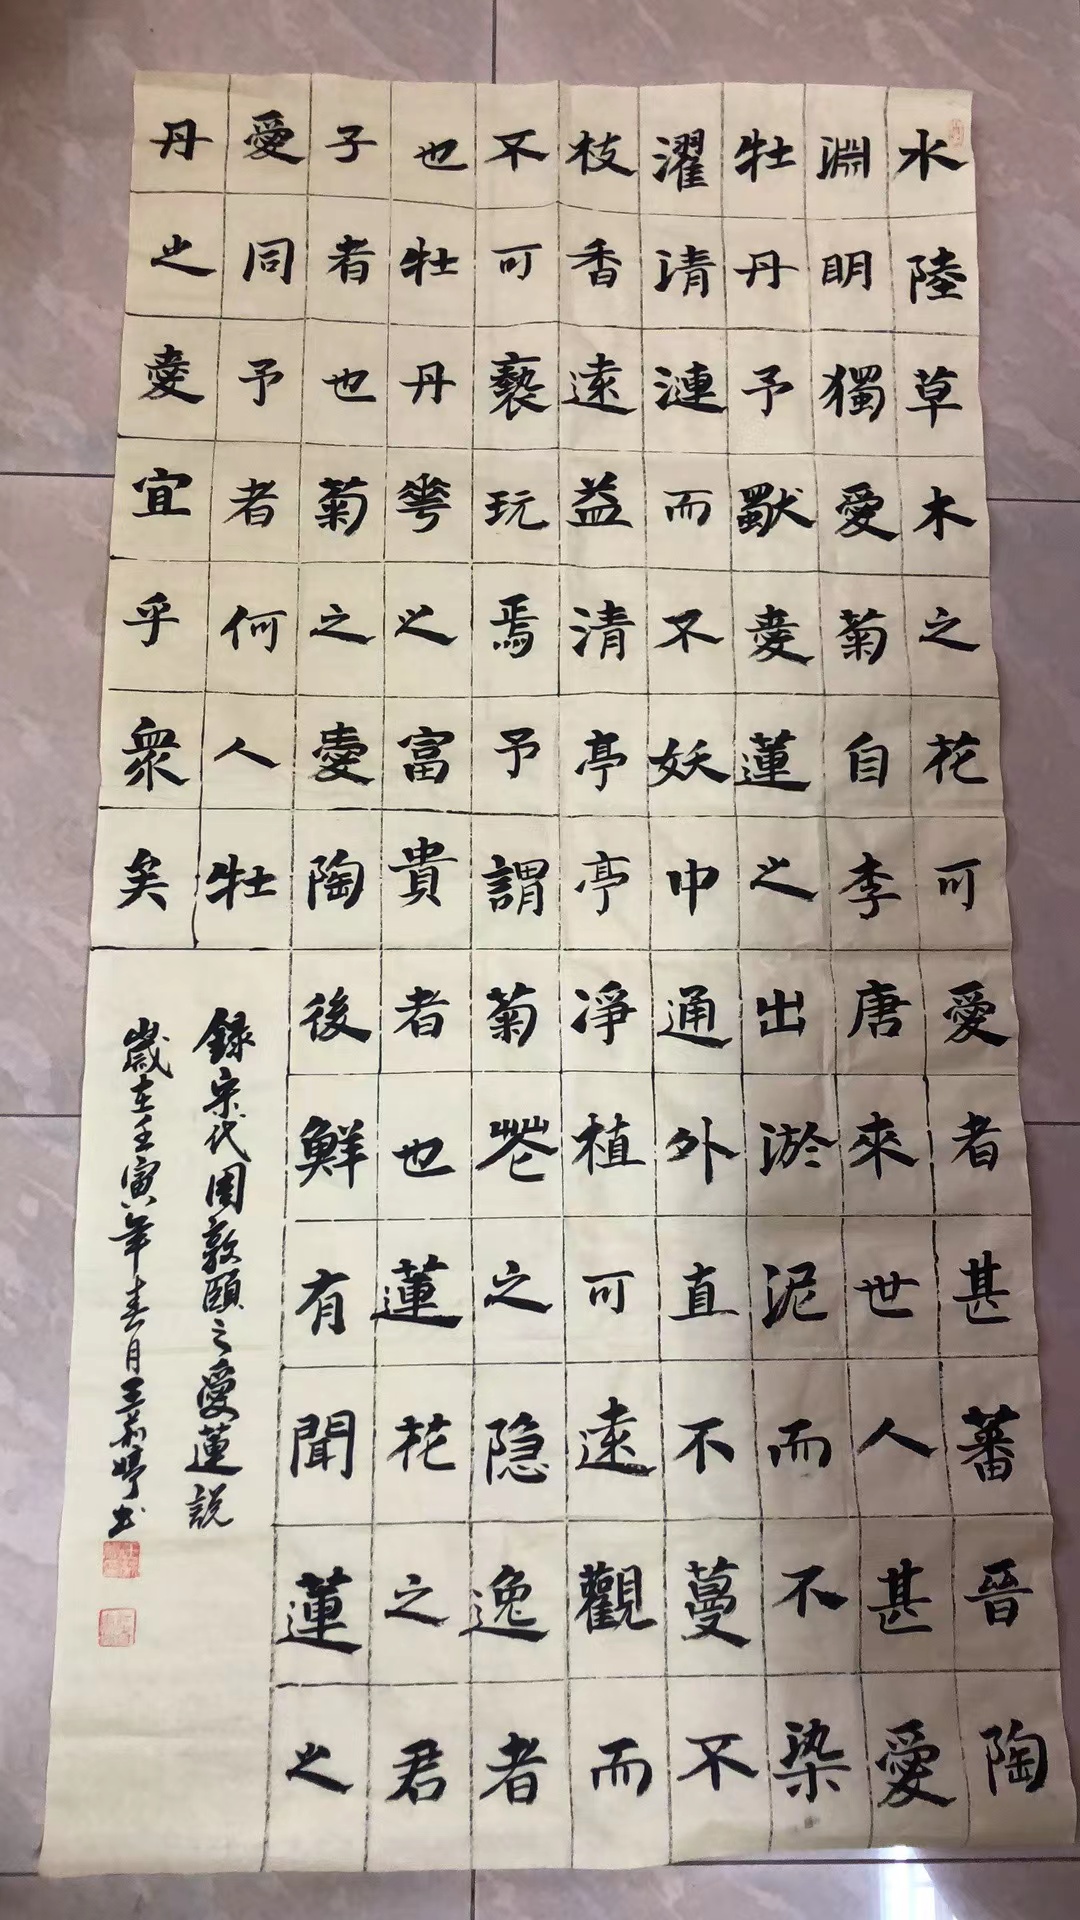 水陸草木之花可愛者甚蕃晉陶
淵明獨愛菊自李唐來世人甚愛
牡丹予獸愛蓮之出淤泥而不染
濯清漣而不妖中通外直不蔓不
枝香遠益清亭亭淨植可遠觀而
不可褻玩焉予謂菊花之隐逸者
也牡丹花之富貴者也蓮花之君
子者也菊之愛陶後鮮有聞蓮之
愛同予者何人牡
丹之愛宜乎衆矣
錄宋代周敦頤之愛蓮説
歲在壬寅年春月王婷书